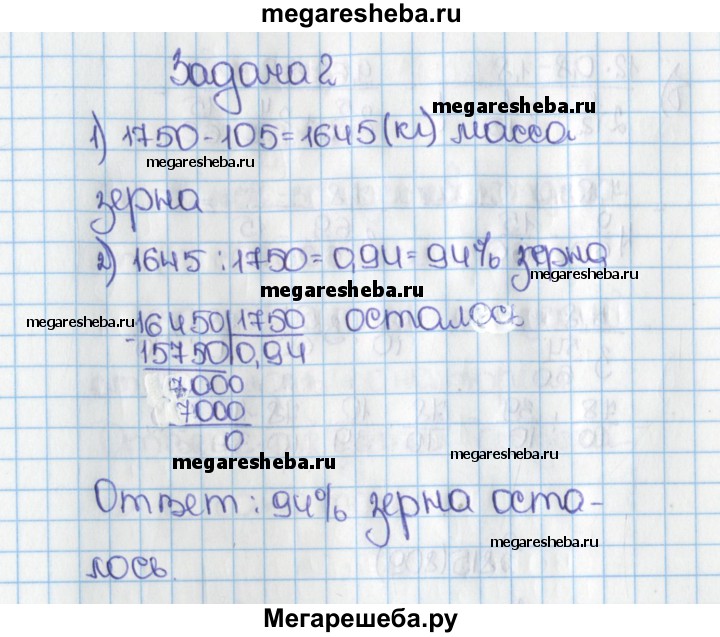 megaresheba.ru
Задача 2
megaresheba.ru
1) 1750 - 105 = 1645 (кг) масса
megaresheba.ru
зерна
2) 1645 : 1750 = 0,94 = 94% зерна
megaresheba.ru
megaresheba.ru
megaresheba.ru
16450 1750 осталось
15750 0,94
7000
7000
0
megaresheba.ru
megaresheba.ru
Ответ: 94% зерна оста-
megaresheba.ru
лось.
Мегарешеба.ру